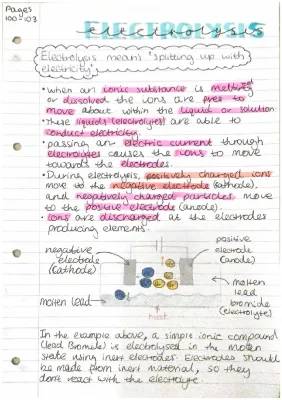 Pages
100-103
ELECTROLYSIS
electrolysis
Electrolysis means "splitting up with
electricity"
• When an ionic substance is melted
or dissolved the ions are free to
move about within the liquid or solution
• These liquids (electrolytes) are able to
conduct electricity.
• passing an electric current through
electrolytes causes the ions to move
towards the electrodes.
• During electrolysis, positively charged ions
move to the negative electrode (cathode),
and negatively charged particles move
to the positive electrode (anode).
• Ions are discharged at the electrodes
producing elements.
negative
electrode
(cathode)
positive
electrode
(anode)
molten lead
molten
lead
bromide
(electrolyte)
heat
In the example above, a simple ionic compound
(lead Bromide) is electrolysed in the molten
state using inert electrodes. Electrodes should
be made from inert material, so they
don't react with the electrolyte.